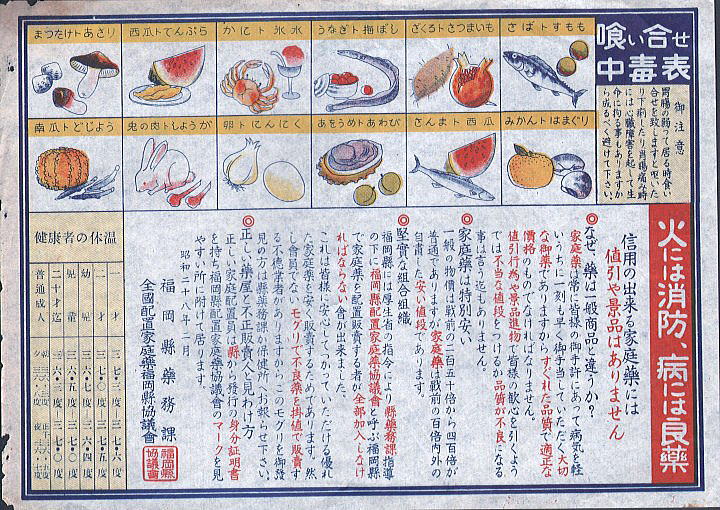 喰い合せ
中毒表
御注意
胃腸の弱って居る時食い
合せを致しますと嘔いた
り下痢したり胃腸痛み時
には心臓障害を起して生
命に拘る事もありますか
ら成るべく避けて下さい。
さばトすもも
ざくろトさつまいも
うなぎト梅ぼし
かにト氷水
西瓜トてんぷら
まつたけトあさり
みかんトはまぐり
さんまト西瓜
あをうめトあわび
卵トにんにく
兎の肉トしょうが
南瓜トどじよう
火には消防、病には良薬
信用の出来る家庭薬には
値引や景品はありません
◎なぜ、薬は一般商品と違うか?
家庭薬は常に皆様の御手許にあって病気を軽
いうちに一刻も早く御手当していただく大切
な御薬でありますからすぐれた品質で適正な
価格のものでなければなりません。
値引行為や景品進物で皆様の歓心を引くよう
では不当な値段をつけるか品質が不良になる
事は言う迄もありません。
◎家庭薬は特別安い
一般の物価は戦前の二百五十倍から四百倍が
普通でありますが家庭薬は戦前の百倍内外の
自粛した安い値段であります。
◎堅実な組合組織
福岡縣には厚生省の指令により縣薬務課指導
の下に福岡縣配置家庭薬協議會と呼ぶ福岡縣
で家庭薬を配置販売する者が全部加入しなけ
ればならない會が出来ました。
これは皆様に安心してつかっていただける優れ
た家庭薬を安く販売するためであります。然
し會員でないモグリで不良薬を掛値で販売す
る不徳業者がありますからこのモグリを御発
見の方は縣薬務課か保健所へお報らせ下さい。
◎正しい薬屋と不正販売人と見わけ方
正しい家庭配置員は縣から発行の身分証明書
を持ち福岡縣配置家庭薬協議會のマークを見
やすい所に附けて居ります。
昭和二十八年一月
福岡縣薬務課
全國配置家庭薬福岡縣協議會
福岡縣
協議會
健康者の体温
一才 三七・三度 三七・六度
幼兒 二才
兒童
二十才迄
普通成人